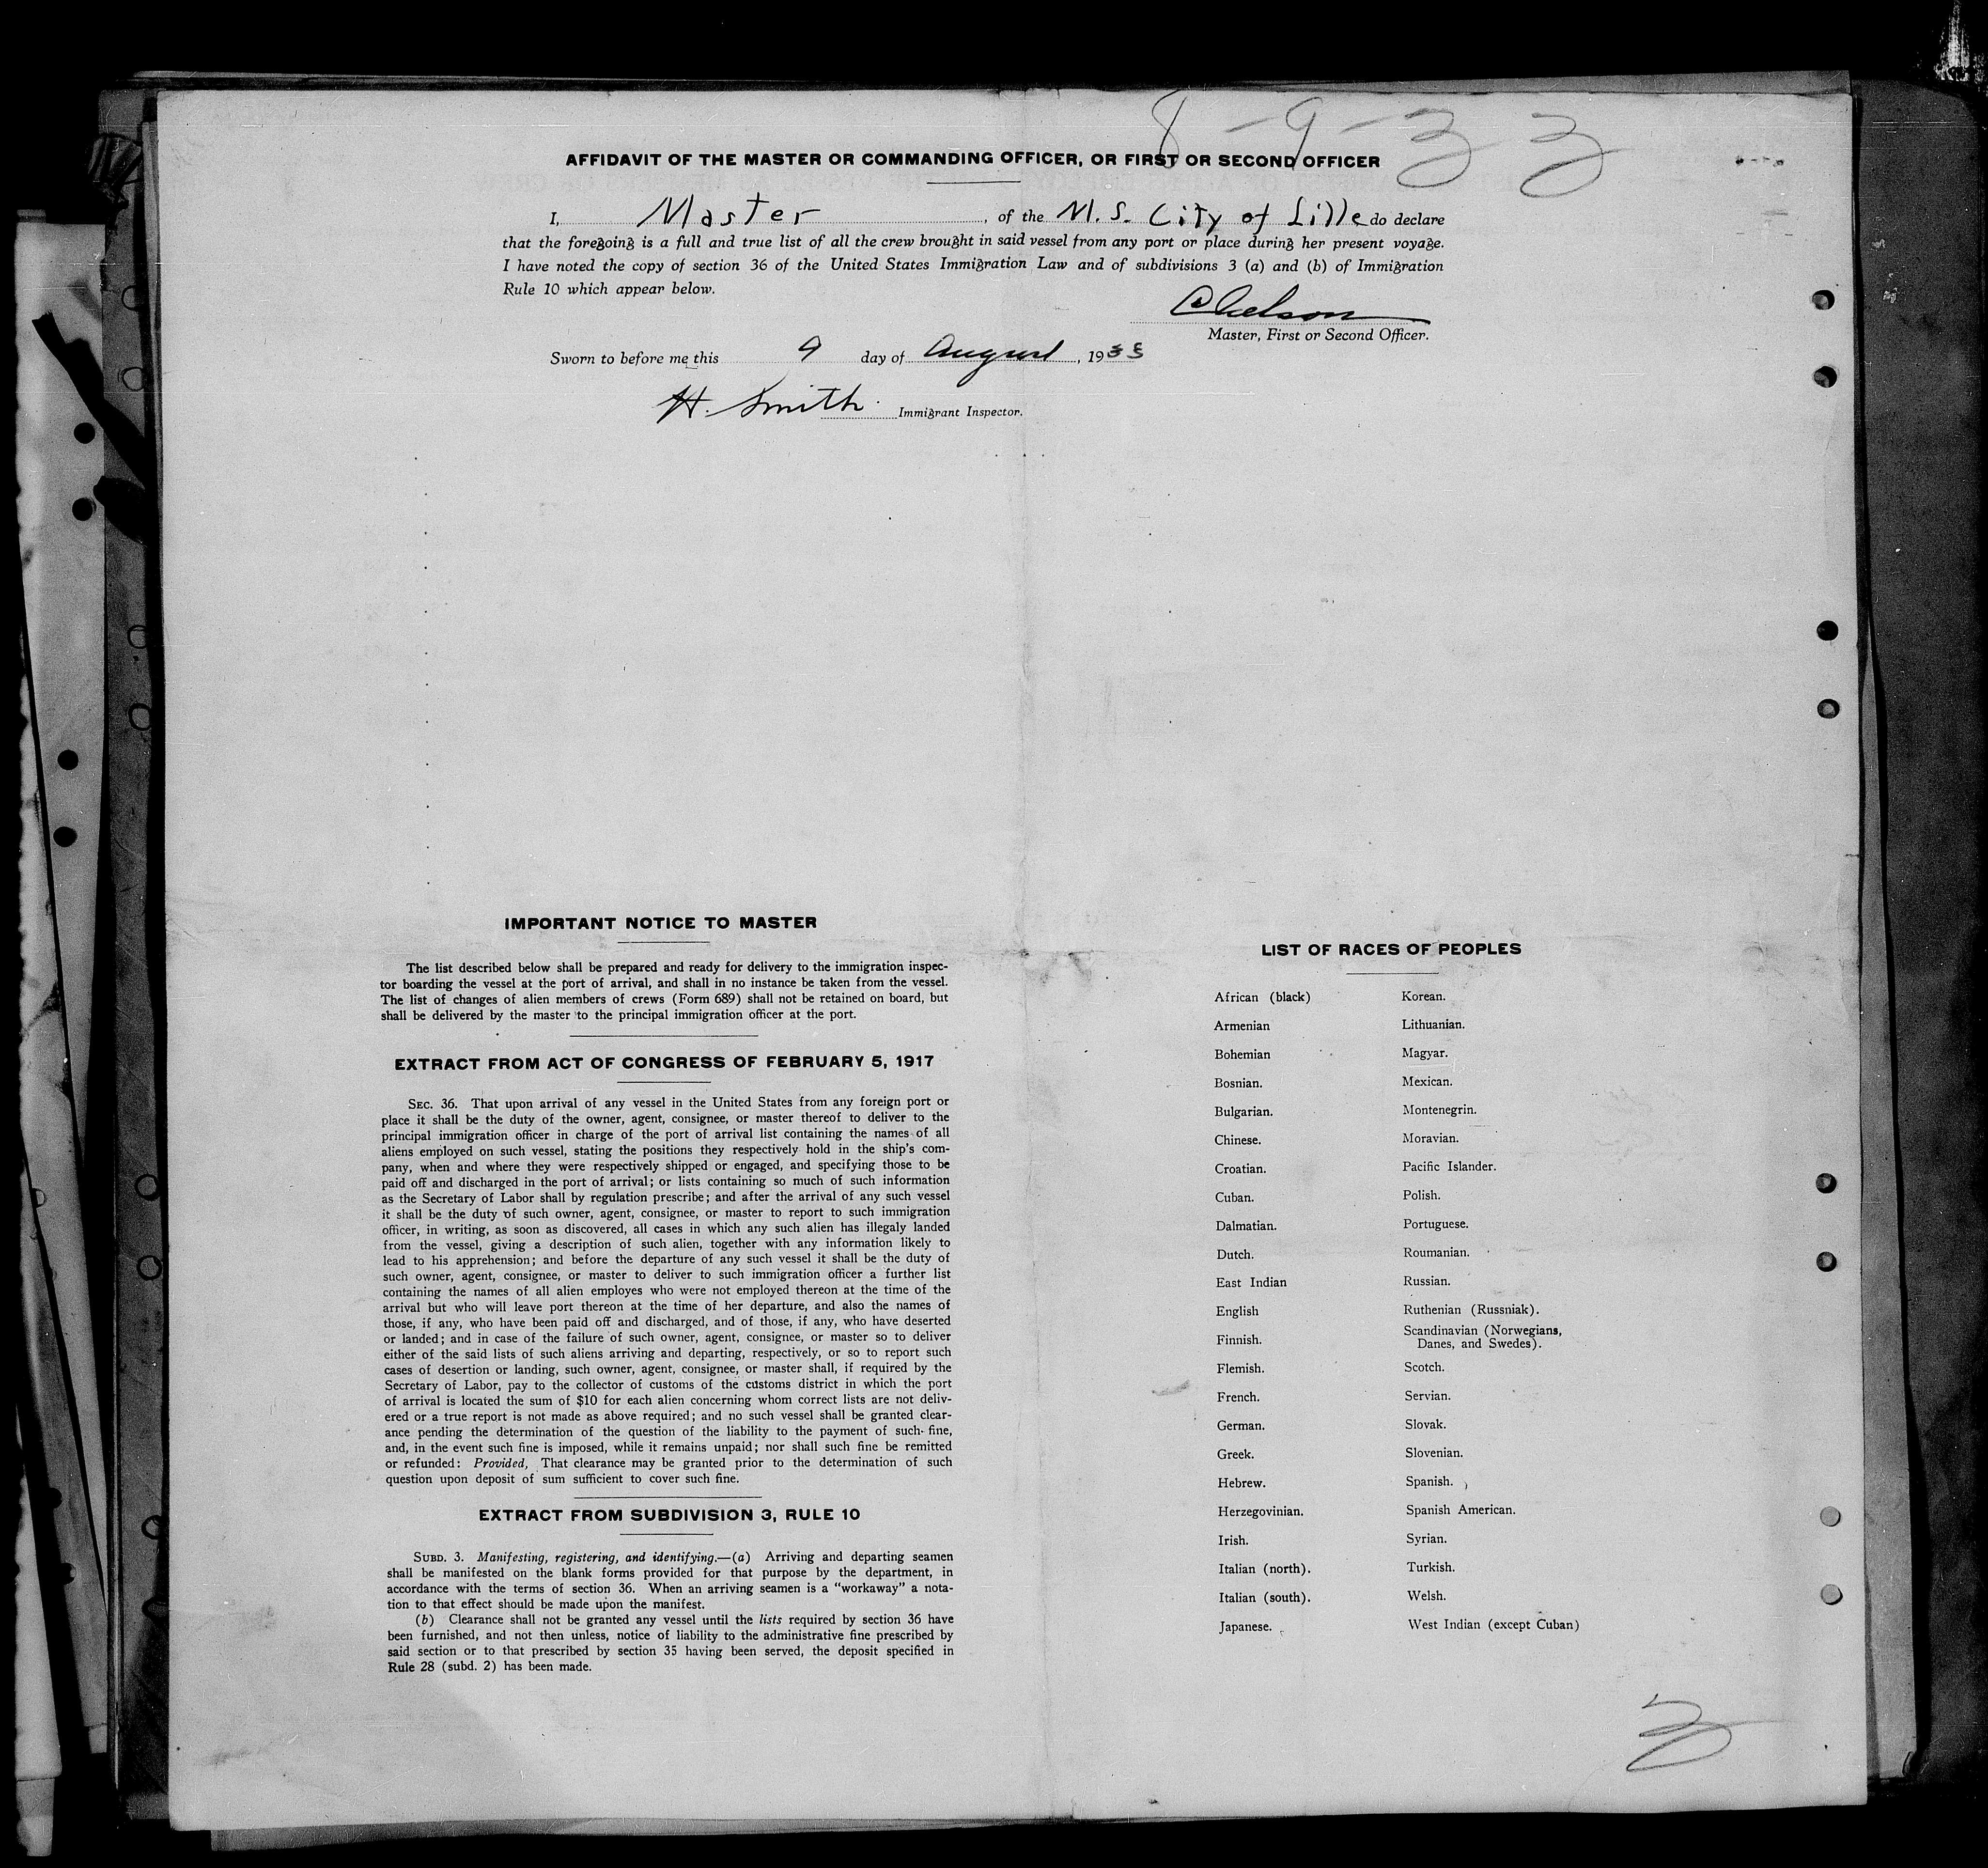 8-9-33
AFFIDAVIT OF THE MASTER OR COMMANDING OFFICER, OR FIRST OR SECOND OFFICER
I, Master, of the M.S. City of Lille do declare
that the foregoing is a full and true list of all the crew brought in said vessel from any port or place during her present voyage.
I have noted the copy of section 36 of the United States Immigration Law and of subdivisions 3 (a) and (b) of Immigration
Rule 10 which appear below.
Master, First or Second Officer.
Sworn to before me this 9 day of August, 1933
H. Smith Immigrant Inspector.
IMPORTANT NOTICE TO MASTER
The list described below shall be prepared and ready for delivery to the immigration inspec-
tor boarding the vessel at the port of arrival, and shall in no instance be taken from the vessel.
The list of changes of alien members of crews (Form 689) shall not be retained on board, but
shall be delivered by the master to the principal immigration officer at the port.
EXTRACT FROM ACT OF CONGRESS OF FEBRUARY 5, 1917
SEC. 36. That upon arrival of any vessel in the United States from any foreign port or
place it shall be the duty of the owner, agent, consignee, or master thereof to deliver to the
principal immigration officer in charge of the port of arrival list containing the names of all
aliens employed on such vessel, stating the positions they respectively hold in the ship's com-
pany, when and where they were respectively shipped or engaged, and specifying those to be
paid off and discharged in the port of arrival; or lists containing so much of such information
as the Secretary of Labor shall by regulation prescribe; and after the arrival of any such vessel
it shall be the duty of such owner, agent, consignee, or master to report to such immigration
officer, in writing, as soon as discovered, all cases in which any such alien has illegaly landed
from the vessel, giving a description of such alien, together with any information likely to
lead to his apprehension; and before the departure of any such vessel it shall be the duty of
such owner, agent, consignee, or master to deliver to such immigration officer a further list
containing the names of all alien employes who were not employed thereon at the time of the
arrival but who will leave port thereon at the time of her departure, and also the names of
those, if any, who have been paid off and discharged, and of those, if any, who have deserted
or landed; and in case of the failure of such owner, agent, consignee, or master so to deliver
either of the said lists of such aliens arriving and departing, respectively, or so to report such
cases of desertion or landing, such owner, agent, consignee, or master shall, if required by the
Secretary of Labor, pay to the collector of customs of the customs district in which the port
of arrival is located the sum of $10 for each alien concerning whom correct lists are not deliv-
ered or a true report is not made as above required; and no such vessel shall be granted clear-
ance pending the determination of the question of the liability to the payment of such fine,
and, in the event such fine is imposed, while it remains unpaid; nor shall such fine be remitted
or refunded: Provided, That clearance may be granted prior to the determination of such
question upon deposit of sum sufficient to cover such fine.
EXTRACT FROM SUBDIVISION 3, RULE 10
SUBD. 3. Manifesting, registering, and identifying.—(a) Arriving and departing seamen
shall be manifested on the blank forms provided for that purpose by the department, in
accordance with the terms of section 36. When an arriving seamen is a "workaway" a nota-
tion to that effect should be made upon the manifest.
(b) Clearance shall not be granted any vessel until the lists required by section 36 have
been furnished, and not then unless, notice of liability to the administrative fine prescribed by
said section or to that prescribed by section 35 having been served, the deposit specified in
Rule 28 (subd. 2) has been made.
LIST OF RACES OF PEOPLES
African (black) Korean.
Armenian Lithuanian.
Bohemian Magyar.
Bosnian. Mexican.
Bulgarian. Montenegrin.
Chinese. Moravian.
Croatian. Pacific Islander.
Cuban. Polish.
Dalmatian. Portuguese.
Dutch. Roumanian.
East Indian Russian.
English Ruthenian (Russniak).
Finnish. Scandinavian (Norwegians,
Danes, and Swedes).
Flemish. Scotch.
French. Servian.
German. Slovak.
Greek. Slovenian.
Hebrew. Spanish.
Herzegovinian. Spanish American.
Irish. Syrian.
Italian (north). Turkish.
Italian (south). Welsh.
Japanese. West Indian (except Cuban)
3